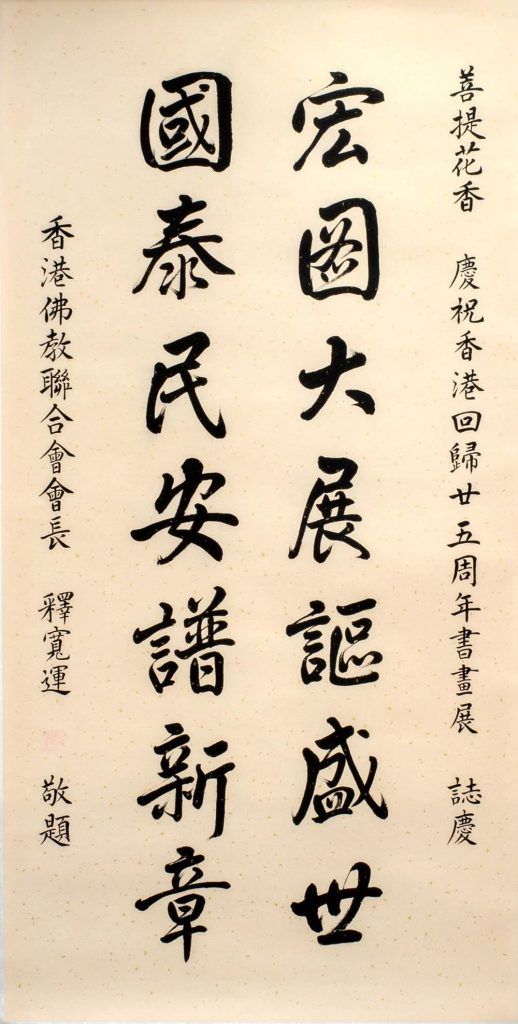 菩提花香 慶祝香港回歸廿五周年書畫展 誌慶
宏圖大展謳盛世
國泰民安譜新章
香港佛教聯合會會長 釋寬運 敬題